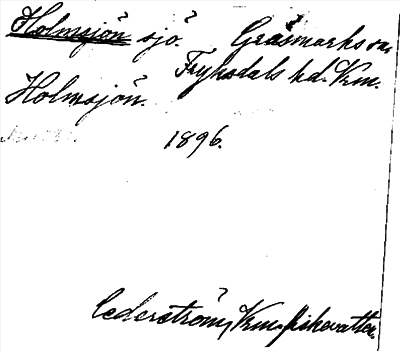 Holmsjön sjö. Gräsmarks sn.
Fryksdals hd. Vrm.
Holmsjön.
1896.
Cederström, Vrm. fiskevatten.